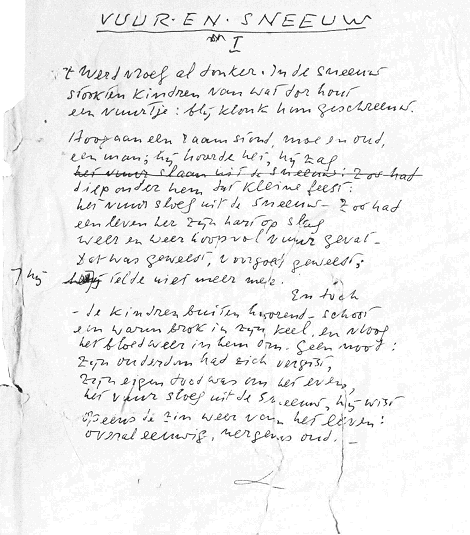 VUUR·EN·SNEEUW
I
't Werd vroeg al donker. In de sneeuw
stookten kindren van wat dor hout
een vuurtje: blij klonk hun geschreeuw.
Hoog aan een raam stond, moe en oud,
een man; hij hoorde het, hij zag
het vuur slaan uit de sneeuw: Zoo had
diep onder hem dat kleine feest:
het vuur sloeg uit de sneeuw – Zoo had
een leven her zijn hart op slag
weer en weer hoopvol vuur gevat –
Dat was geweest, voorgoed geweest;
hij
telde niet meer mee.
En toch
– de kindren buiten hoorend – schoot
een warm brok in zijn keel, en vloog
het bloed weer in hem om. Geen nood:
zijn ouderdom had zich vergist,
zijn eigen dood was om het even,
het vuur sloeg uit de sneeuw, hij wist
opeens de zin weer van het leven:
overal eeuwig, nergens oud. –